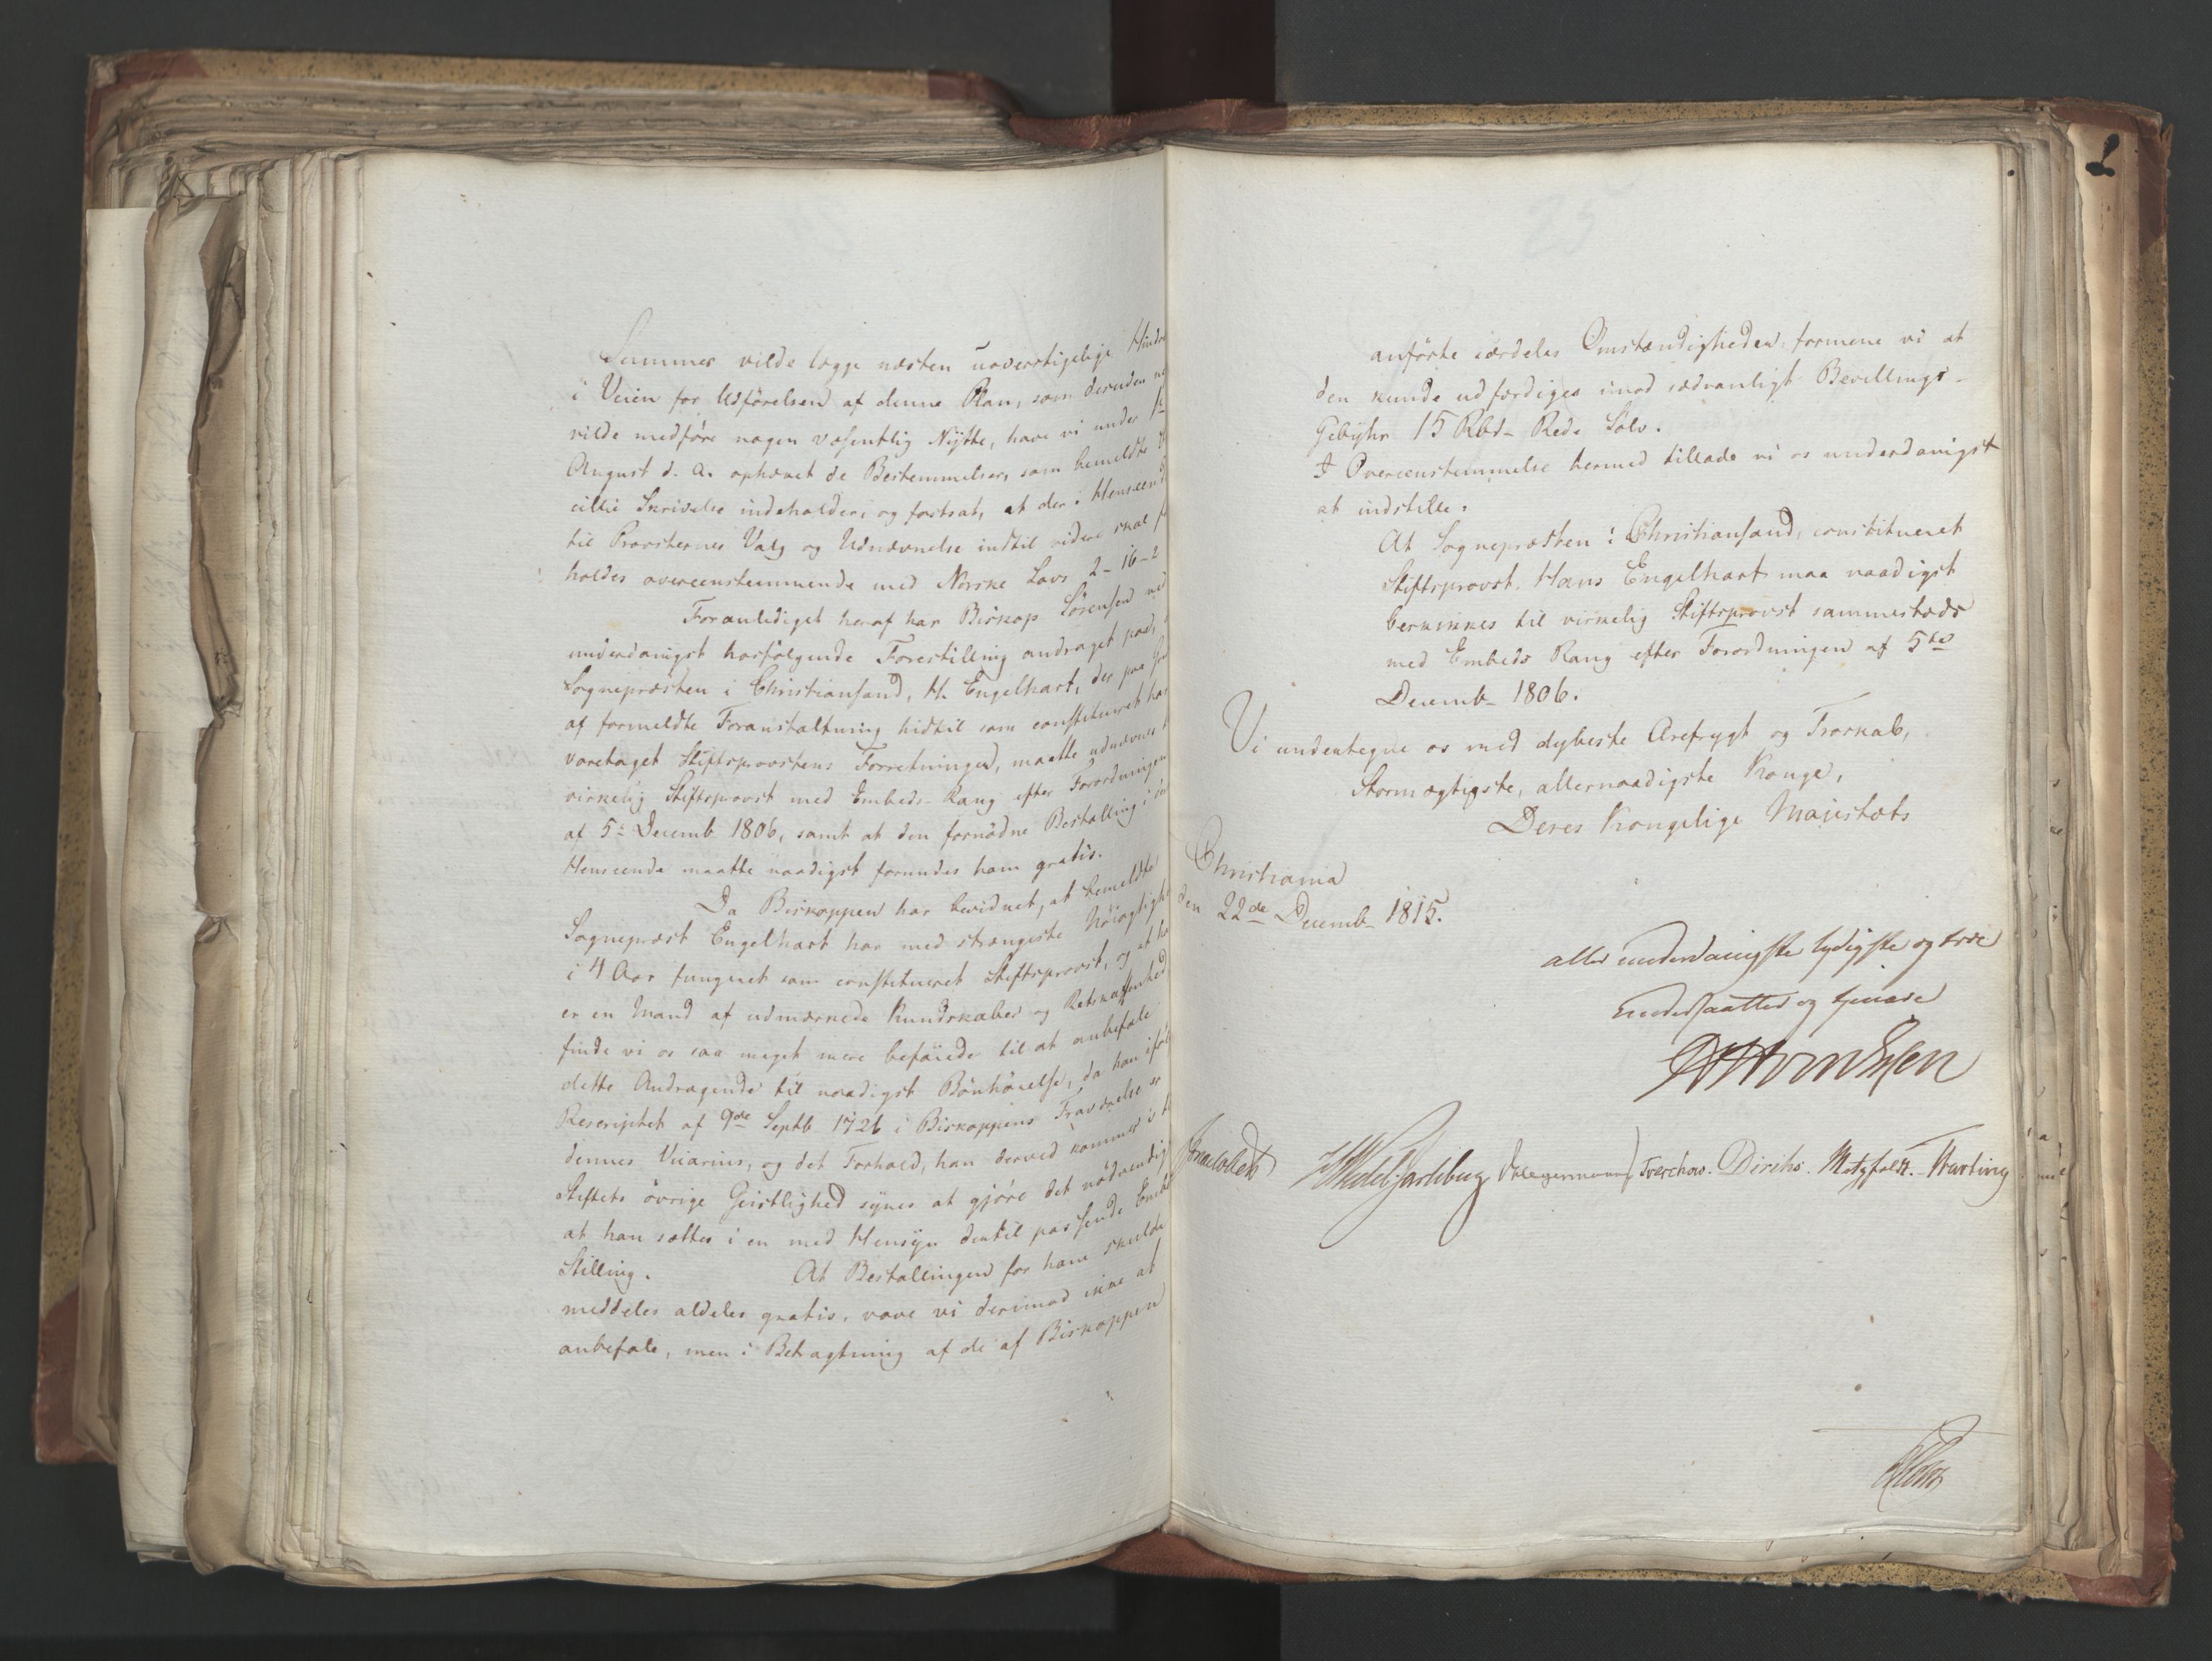 Summer vilde lægge næsten uoverstigelige Hindr
i Veien for Udførelsen af denne Plan, som desuden
vilde medføre nogen væsentlig Nÿtte, have vi under
August d. A. ophævet de Bestemmelser, som bemeldte
cillie Skrivelse indeholder; og fastsat, at der i Henseend
til Provsternes Valg og Udnævnelse indtil videre skal
holdes overeenstemmende med Norske Lovs 2-16-2
Foranlediget heraf har Biskop Sörensen ved
underdanigst hosfølgende Forestilling andraget paa,
Sognepræsten i Christiansand, H. Engelhart, der paa
af formeldte Foranstaltning hidtil som constitueret har
foretaget Stiftsprovstens Forretninger, maatte udnævnes
virkelig Stiftsprovst med Embeds-Rang efter Forordningen
af 5: Decemb 1806, samt at den fornødne Bestalling i
Henseende maatte naadigst forundes ham gratis.
Da Biskoppen har bevidnet, at bemeldte
Sognepræst Engelhart har med strængeste Nöiagtigh
i 4 Aar fungeret som constitueret Stiftsprovst, og at ha
er en Mand af udmærkede Kundskaber og Retskaffenhed
finde vi os saa meget mere beföiede til at anbefale
dette Andragende til naadigst Bönhörelse, da han iføl
Rescriptet af 9de Septb 1726 i Biskoppens Fraværelse er
dennes Vicarius, og det Forhold, han derved kommer i
Stiftets övrige Geistlighed synes at gjöre det nödvendig
at han sættes i en med Hensÿn dertil passende Embe
Stilling. At Bestallingen for ham skulde
meddeles aldeles gratis, vove vi derimod ikke at
anbefale, men i Betragtning af de af Biskoppen
anförte særdeles Omstændigheder formene vi at
den kunde udfærdiges imod sædvanligt Bevillings-
Gebÿhr 15 Rbd- Rede Sølv.
I Overeenstemmelse hermed tillade vi os underdanigst
at indstille:
At Sognepræsten i Christiansand, constitueret
Stiftsprovst, Hans Engelhart maa naadigst
beskikkes til virkelig Stiftsprovst sammesteds
med Embeds Rang efter Forordningen af 5te
Decemb- 1806.
Vi undertegne os med dybeste Ærefrygt og Troskab,
Stormægtigste, allernaadigste Konge,
Deres Kongelige Majestæts
Christiania
den 22de Decemb- 1815.
allerunderdanigste lydigste og troe
Undersaatter og tjenere
Wedel Jarlsberg Treschow. Diriks. Motzfeldt.